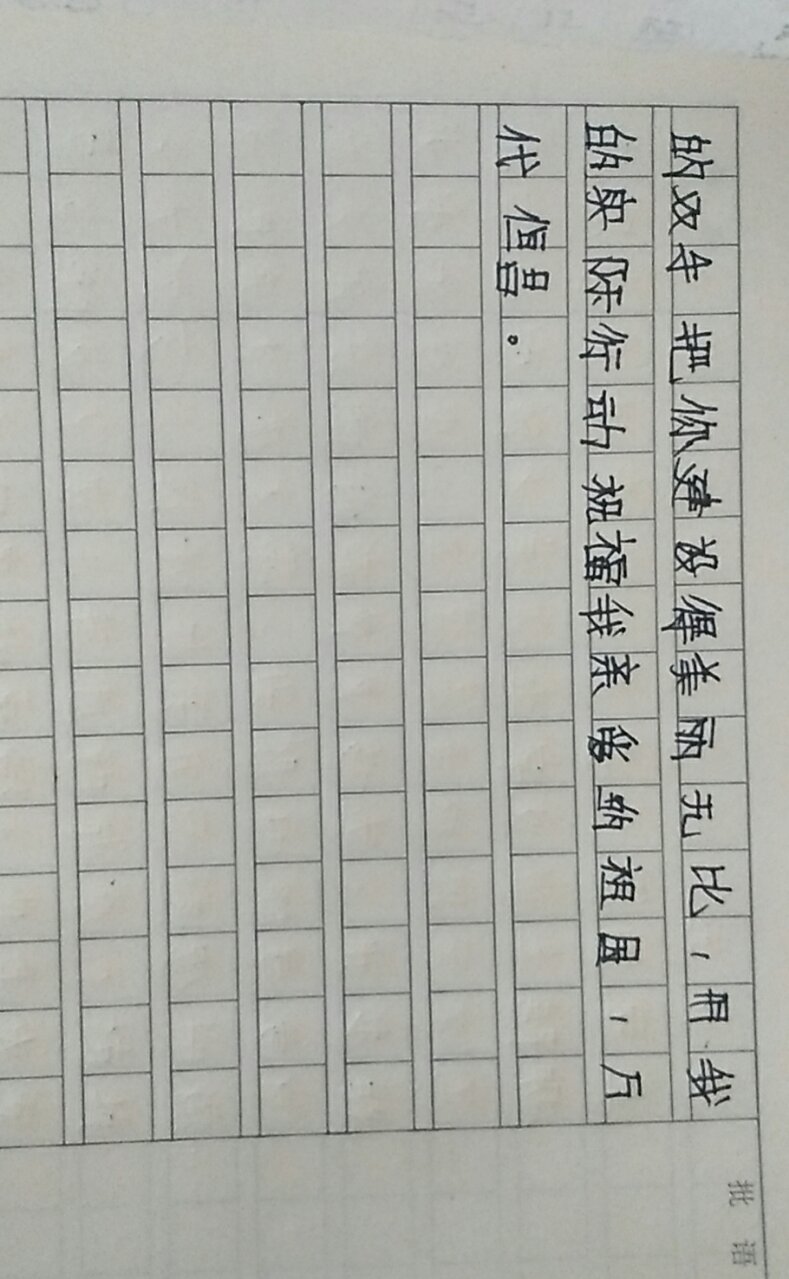 的双手把你建设得美丽无比，用我
的实际行动祝福我亲爱的祖国，万
代恒昌。
批语